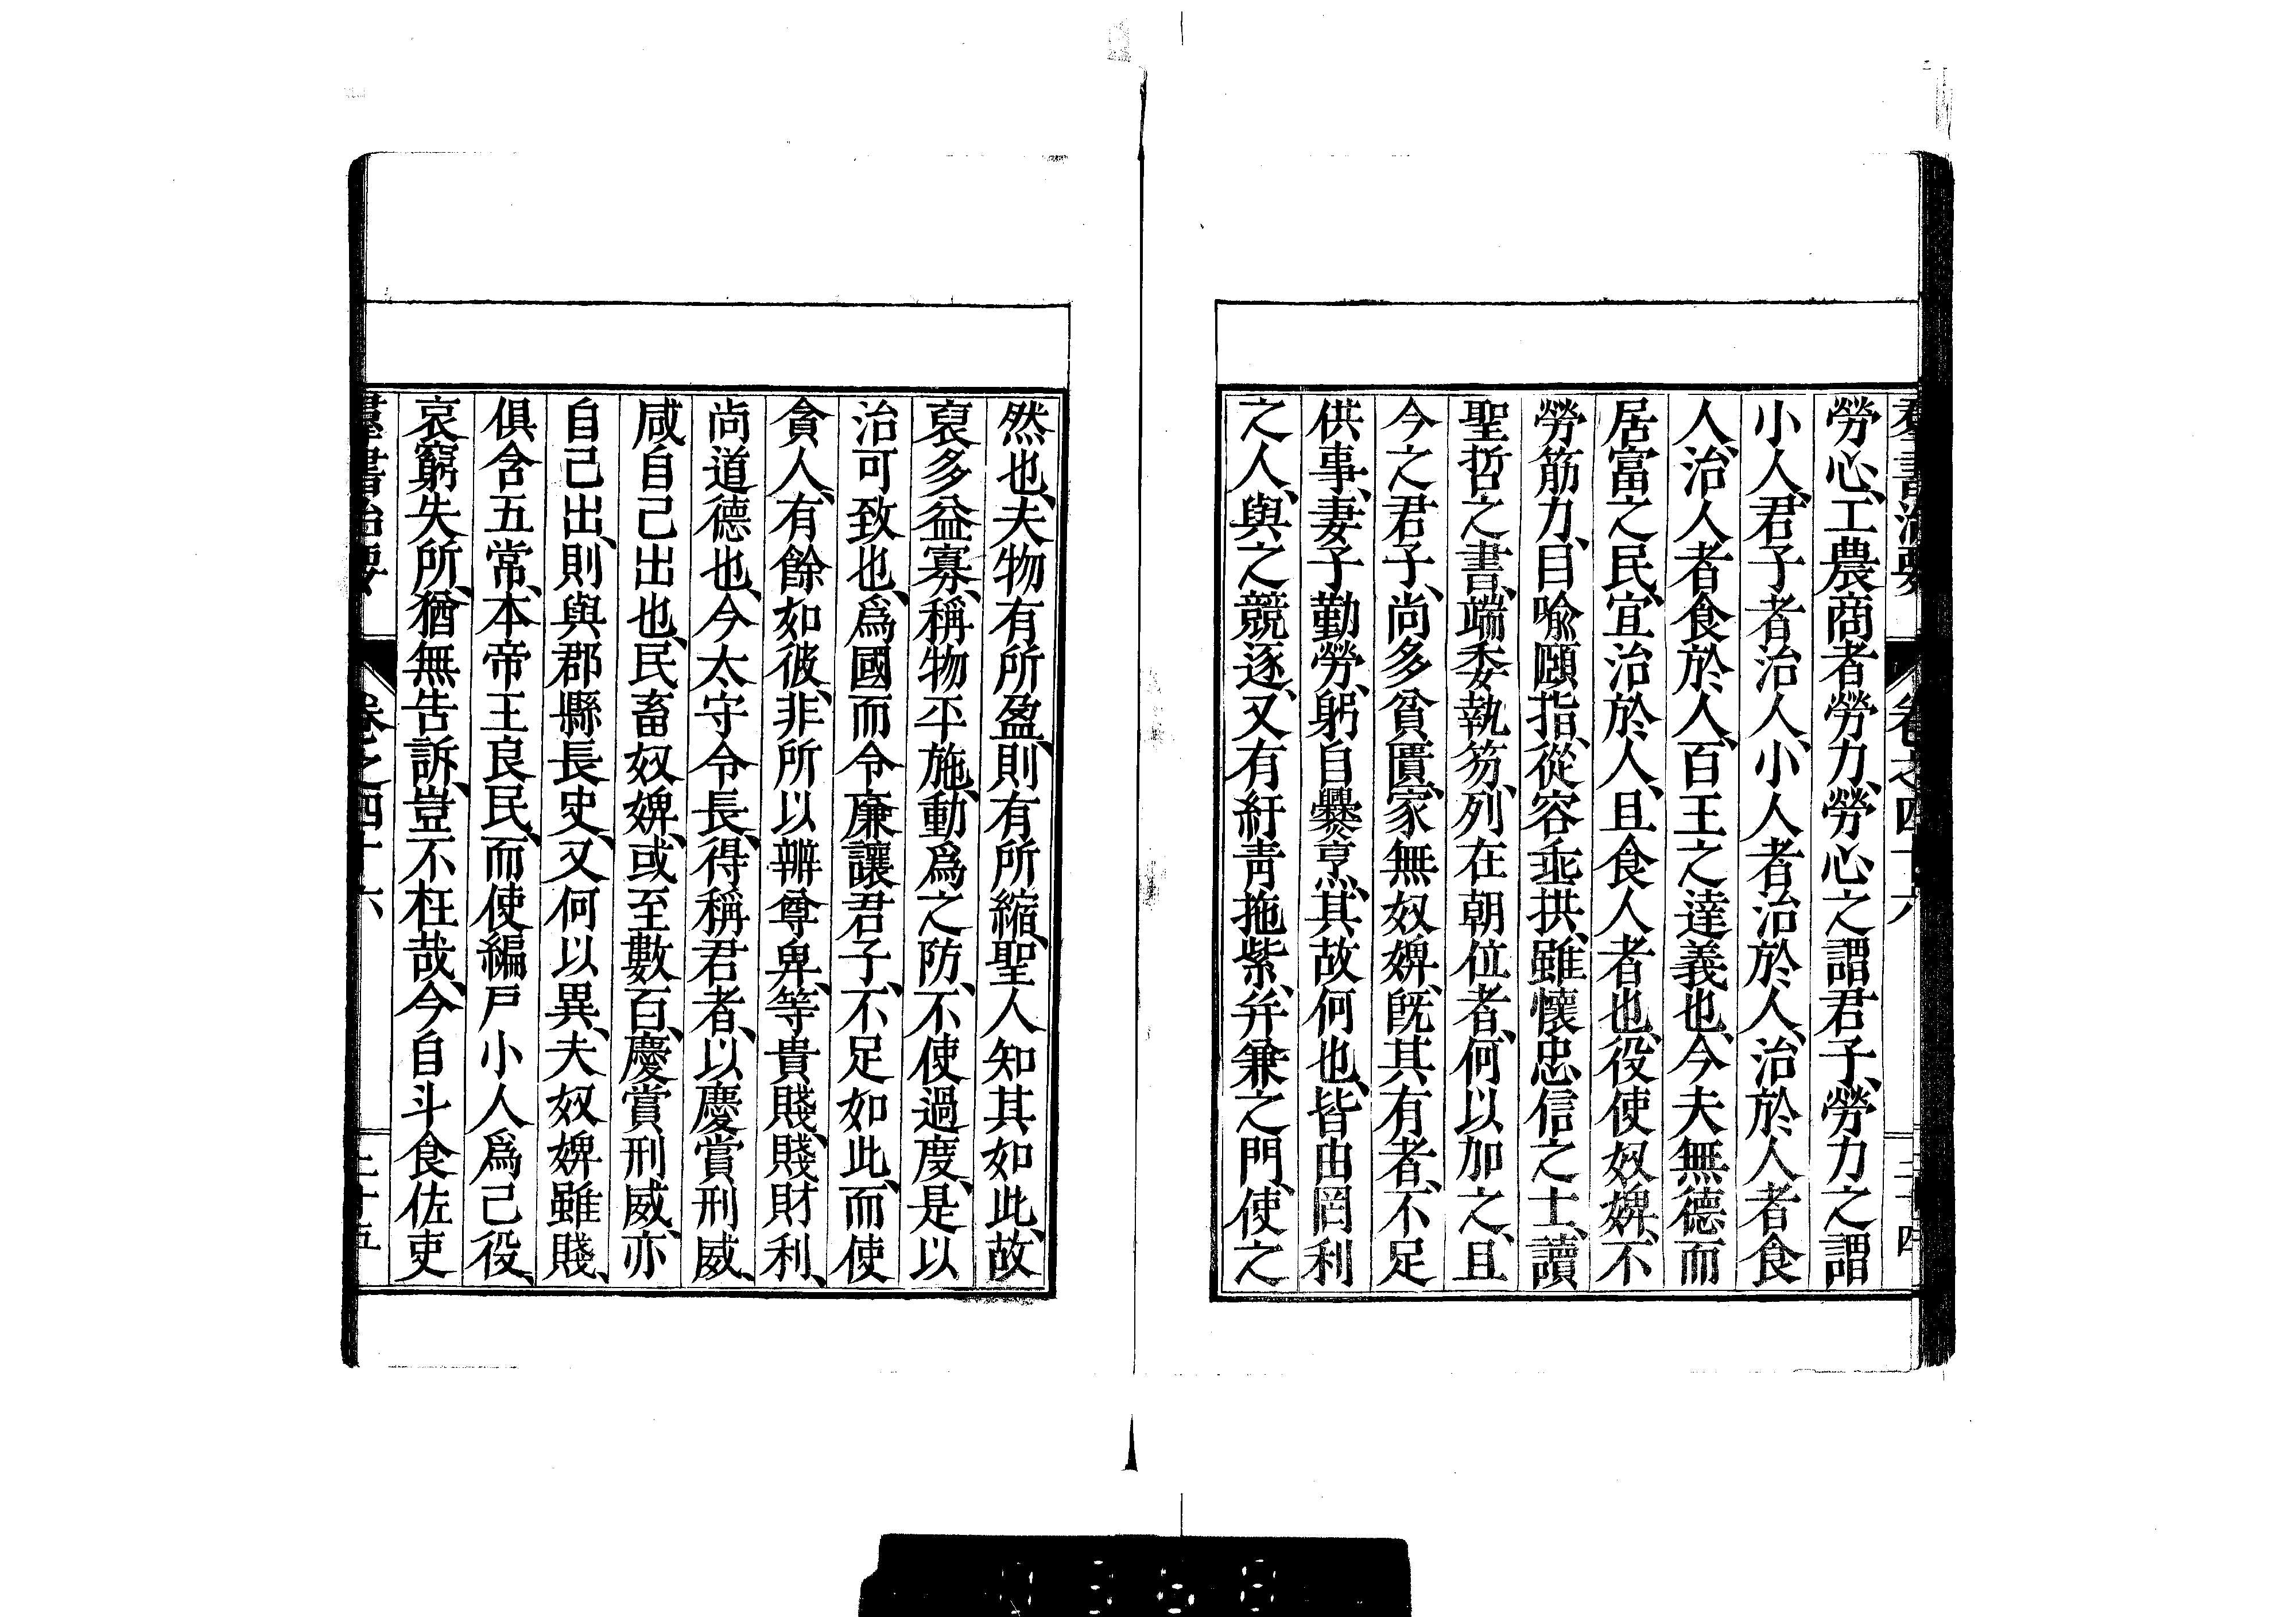 羣書治要 卷之四十六 三十四
勞心、工農商者勞力、勞心之謂君子、勞力之謂
小人、君子者治人、小人者治於人、治於人者食
人、治人者食於人、百王之達義也、今夫無德而
居富之民、宜治於人、且食人者也、役使奴婢、不
勞筋力、目喩頤指、從容垂拱、雖懷忠信之士、讀
聖哲之書、端委執笏、列在朝位者、何以加之、且
今之君子、尚多貧匱、家無奴婢、既其有者、不足
供事、妻子勤勞、躬自爨烹、其故何也、皆由罔利
之人、與之競逐、又有紆靑拖紫、幷兼之門、使之
然也、夫物有所盈、則有所縮、聖人知其如此、故
裒多益寡、稱物平施、動爲之防、不使過度、是以
治可致也、爲國而令廉讓君子、不足如此、而使
貪人、有餘如彼、非所以辨尊卑、等貴賤、賤財利、
尚道德也、今太守令長、得稱君者、以慶賞刑威、
咸自己出也、民畜奴婢、或至數百、慶賞刑威、亦
自己出、則與郡縣長史、又何以異、夫奴婢雖賤、
俱含五常、本帝王良民、而使編戸小人爲己役、
哀窮失所、猶無告訴、豈不枉哉、今自斗食佐吏
羣書治要 卷之四十六 三十五